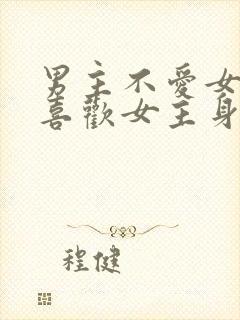 男主不愛女
喜歡女主身
程健